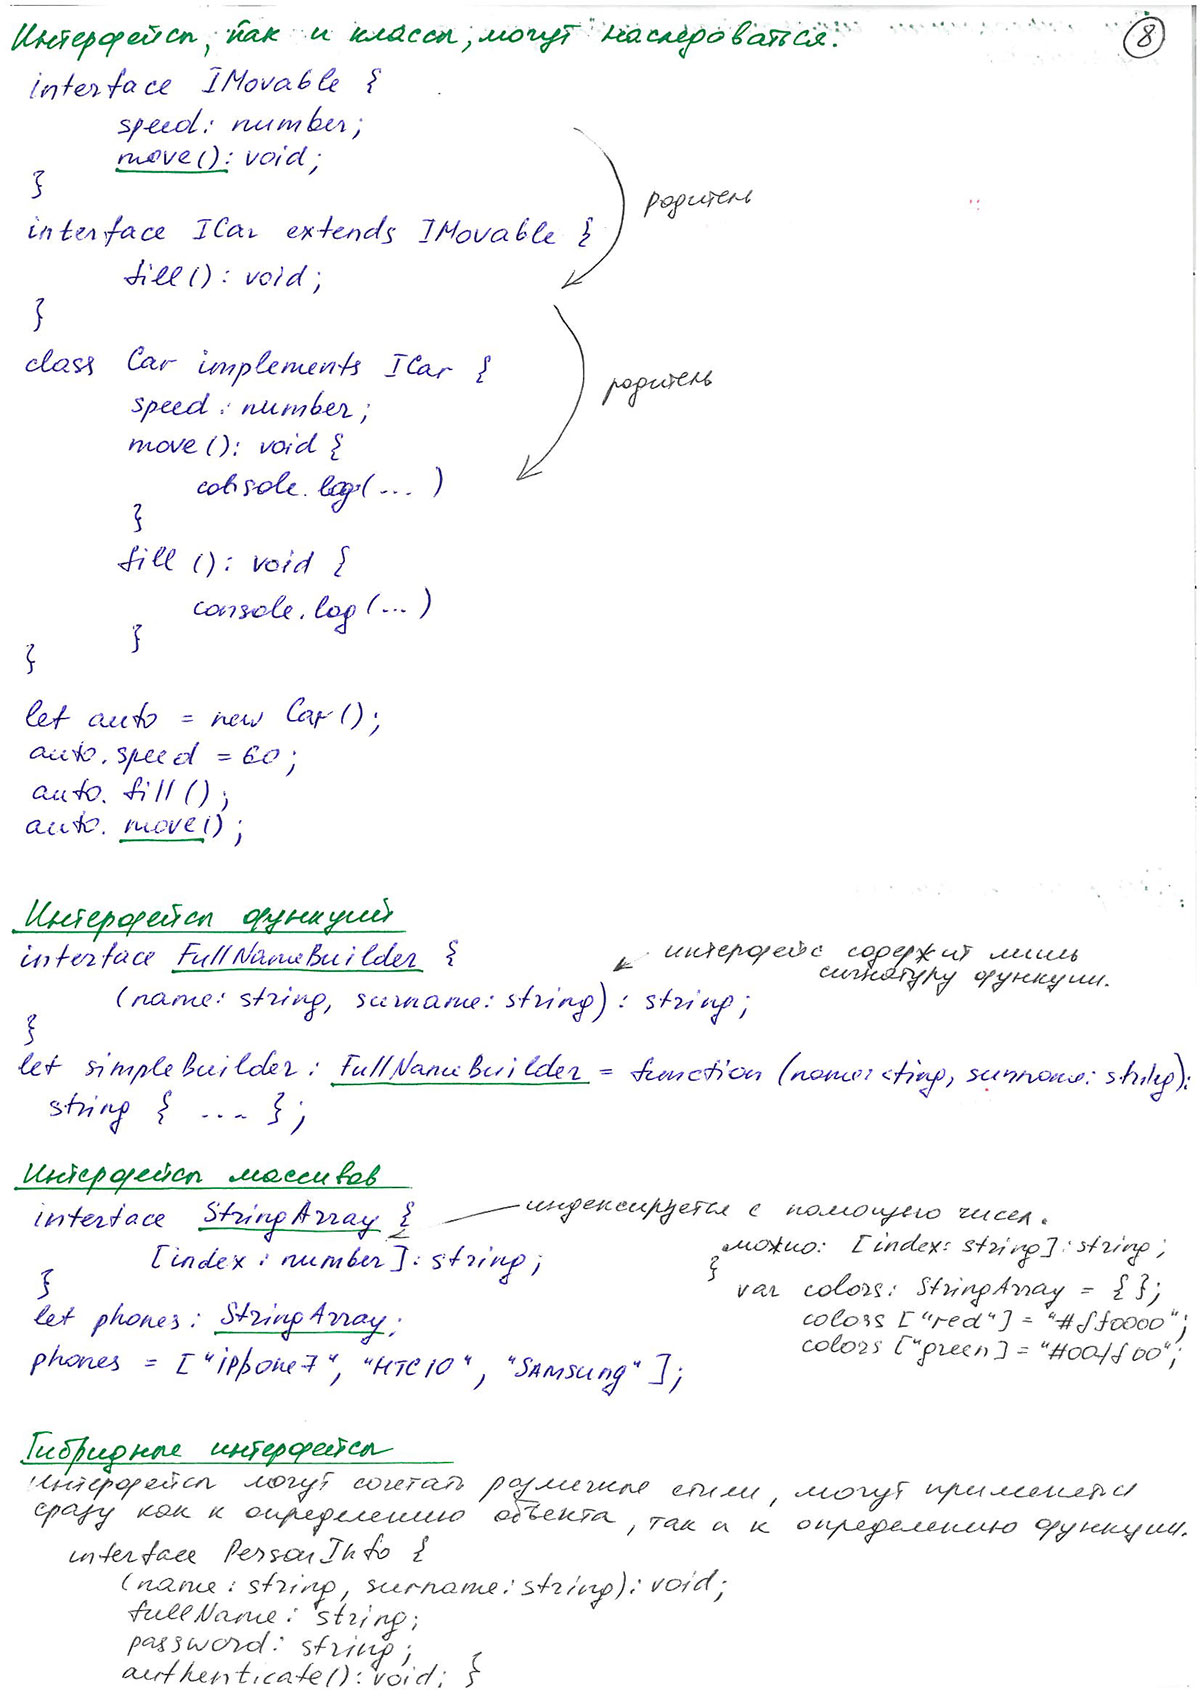 Интерфейсы, как и классы, могут наследоваться.
8
interface IMovable {
speed: number;
move(): void;
}
родитель
interface ICar extends IMovable {
fill(): void;
}
class Car implements ICar {
родитель
speed: number;
move(): void {
console.log(...)
}
fill(): void {
console.log(...)
}
}
let auto = new Car();
auto.speed = 60;
auto.fill();
auto.move();
Интерфейсы функций
interface FullNameBuilder {
интерфейс содержит лишь
сигнатуру функции.
(name: string, surname: string): string;
}
let simpleBuilder: FullNameBuilder = function (name: sting, surname: string):
string { .... };
Интерфейсы массивов
interface StringArray {
индексируется с помощью чисел.
[index: number]: string;
}
let phones: StringArray;
phones = ["iPhone7", "HTC10", "SAMSung"];
можно: [index: string]: string;
}
var colors: StringArray = { };
colors ["red"] = "#ff0000";
colors ["green] = "#00ff00";
Гибридные интерфейсы
Интерфейсы могут сочетать различные стили, могут применяться
сразу как к определению объекта, так и к определению функции.
interface PersonInfo {
(name: string, surname: string): void;
fullName: string;
password: string;
authenticate(): void; }